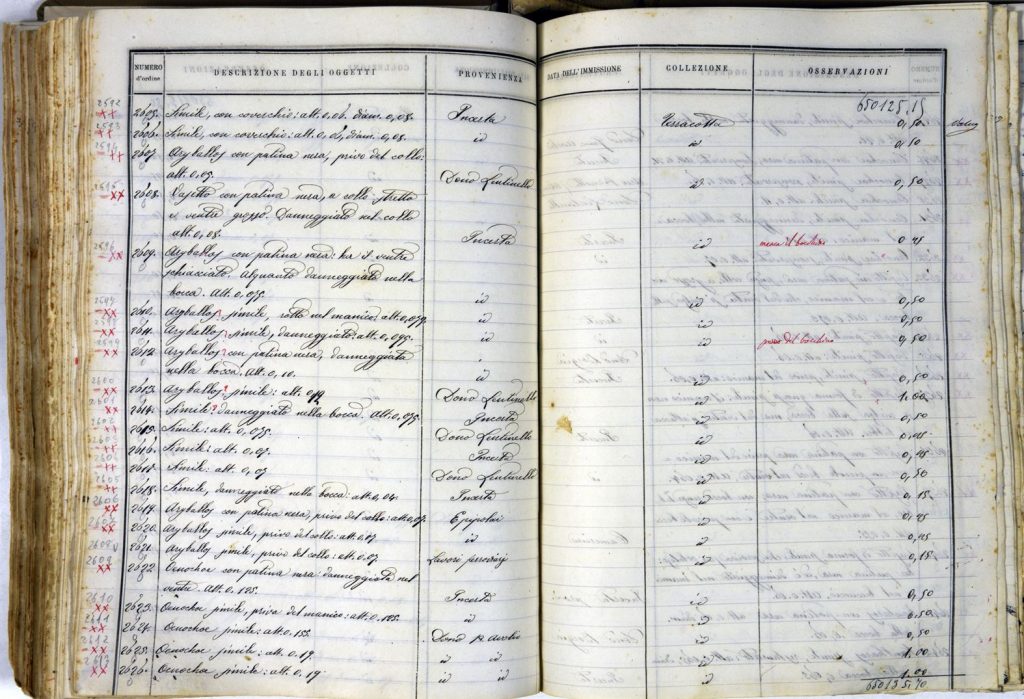 NUMERO d'ordine DESCRIZIONE DEGLI OGGETTI PROVENIENZA DATA DELL'IMMISSIONE COLLEZIONE OSSERVAZIONI
650125,15
2605. Simile, con coverchio: alt. 0,06. diam. 0,08. Incerta Terracotta 0,50
2606. Simile, con coverchio: alt. 0,06, diam. 0,08. id id 0,50
2607. Aryballos con patina nera, privo del collo:
alt. 0,05. Dono Lentinello id 0,50
2608. Vasetto con patina nera, a collo stretto
e ventre grosso. Danneggiato nel collo
alt. 0,08. Incerta id 0,45
2609. Aryballos con patina nera: ha il ventre
schiacciato. Alquanto danneggiato nella
bocca. Alt. 0,075. id id 0,50
2610. Aryballos simile, rotto nel manico: alt. 0,079 id id 0,50
2611. Aryballos, simile, danneggiato: alt. 0,095. id id 0,50
2612. Aryballos? con patina nera, danneggiata
nella bocca. Alt. 0,10. id id 0,50
2613. Aryballos? simile: alt. 0,12 Dono Lentinello id 1.00
2614. Simile? danneggiato nella bocca. Alt. 0,075 Incerta id 0,50
2615. Simile: alt. 0,075. Dono Lentinello id 0,45
2616. Simile: alt. 0,07 Incerta id 0,45
2617. Simile: alt. 0,07 Dono Lentinello id 0,50
2618. Simile, danneggiato nella bocca: alt. 0,04. Incerta id 0,15
2619. Aryballos con patina nera, privo del collo: alt. 0,07. id 0,45
2620. Aryballos simile, privo del collo: alt. 0,07 id id 0,45
2621. Aryballos simile, privo del collo: alt. 0,07 Lavori id 0,15
2622. Oenochoe con patina nera: danneggiata nel
ventre. Alt. 0,125. Incerta id 0,50
2623. Oenochoe simile, priva del manico: alt. 0,125 id id 0.50
2624. Oenochoe simile: alt. 0,155 Dono id 0,50
2625. Oenochoe simile: alt. 0,19 id id id 1.00
2626. Oenochoe simile: alt. 0,19 id id id 1.00
650135,70